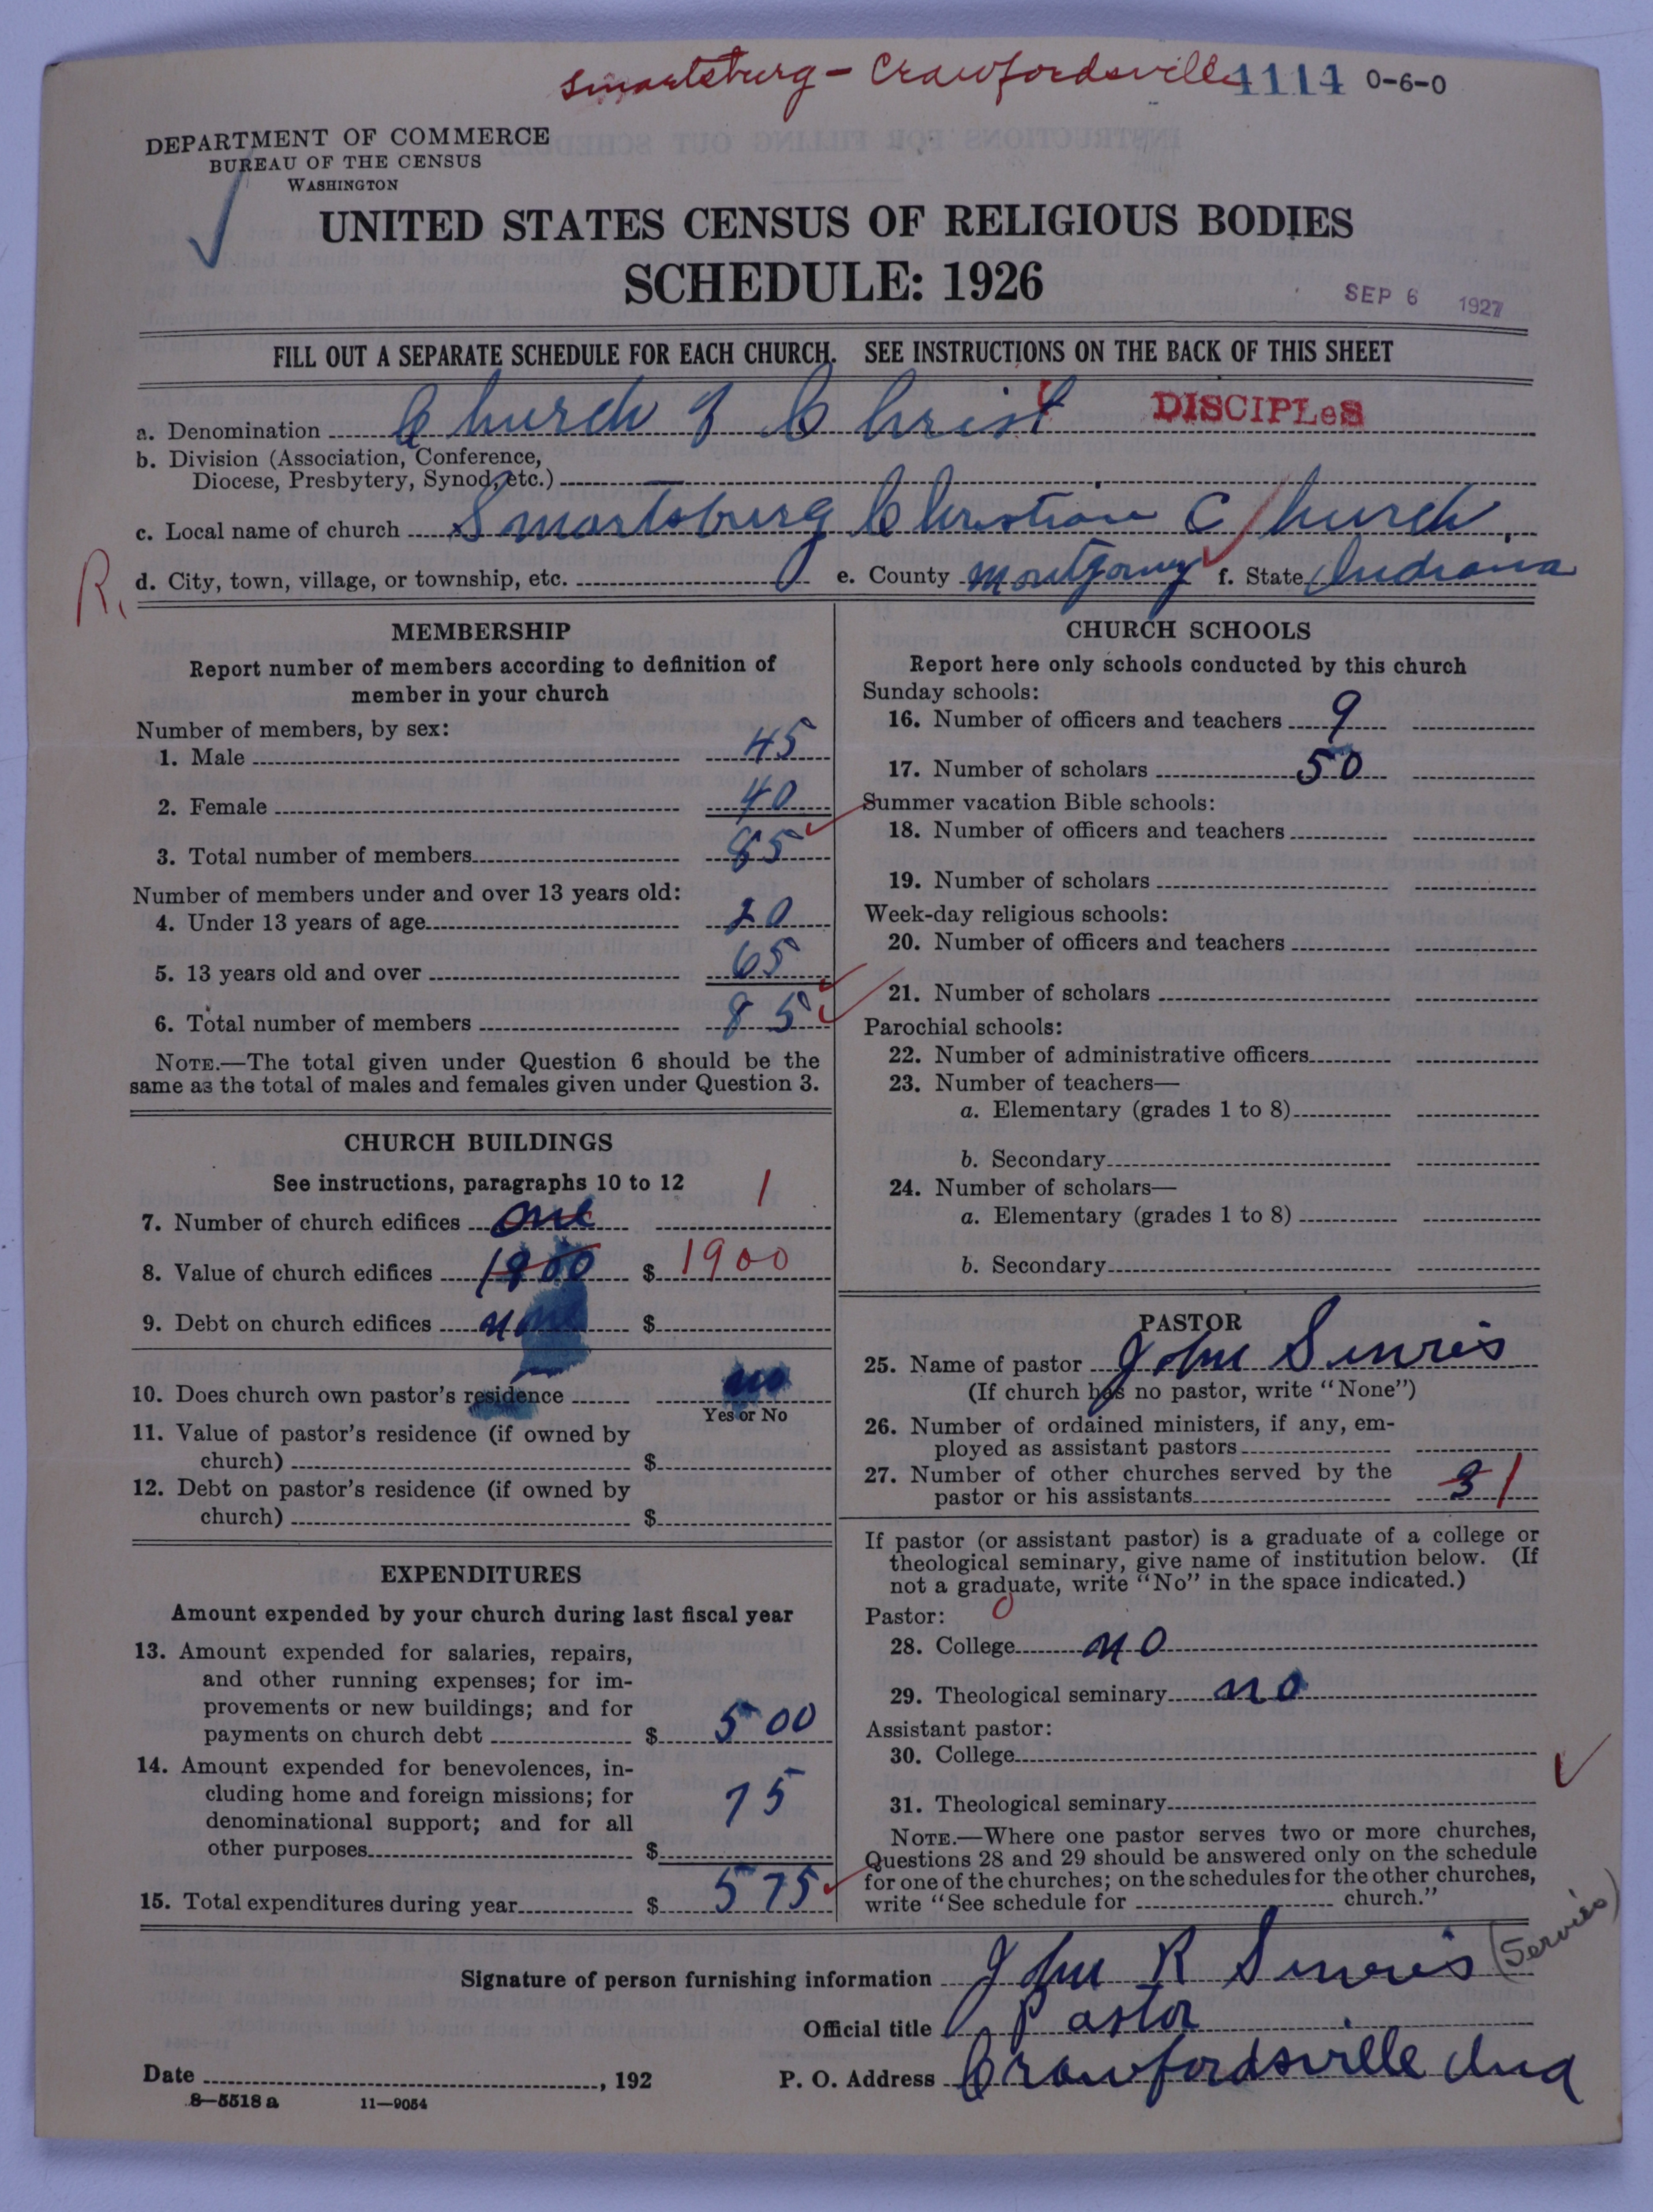 Smartsburg - Crawfordsville 4114 0-6-0
DEPARTMENT OF COMMERCE
BUREAU OF THE CENSUS
WASHINGTON
UNITED STATES CENSUS OF RELIGIOUS BODIES
SCHEDULE: 1926
SEP 6 1927
FILL OUT A SEPARATE SCHEDULE FOR EACH CHURCH. SEE INSTRUCTIONS ON THE BACK OF THIS SHEET
a. Denomination Church of Christ DISCIPLeS
b. Division (Association, Conference,
Diocese, Presbytery, Synod, etc.)
c. Local name of church Smartsburg Christian Church
R. d. City, town, village, or township, etc. e. County Montgomry f. State Indiana
MEMBERSHIP
Report number of members according to definition of
member in your church
Number of members, by sex:
1. Male 45
2. Female 40
3. Total number of members 85
Number of members under and over 13 years old:
4. Under 13 years of age 20
5. 13 years old and over 65
6. Total number of members 85
NOTE.—The total given under Question 6 should be the
same as the total of males and females given under Question 3.
CHURCH BUILDINGS
See instructions, paragraphs 10 to 12
7. Number of church edifices one 1
8. Value of church edifices 1900 $ 1900
9. Debt on church edifices none $
10. Does church own pastor's residence no
Yes or No
11. Value of pastor's residence (if owned by
church) $
12. Debt on pastor's residence (if owned by
church) $
EXPENDITURES
Amount expended by your church during last fiscal year
13. Amount expended for salaries, repairs,
and other running expenses; for im-
provements or new buildings; and for
payments on church debt $ 500
14. Amount expended for benevolences, in-
cluding home and foreign missions; for
denominational support; and for all
other purposes $ 75
15. Total expenditures during year $ 575
CHURCH SCHOOLS
Report here only schools conducted by this church
Sunday schools:
16. Number of officers and teachers 9
17. Number of scholars 50
Summer vacation Bible schools:
18. Number of officers and teachers
19. Number of scholars
Week-day religious schools:
20. Number of officers and teachers
21. Number of scholars
Parochial schools:
22. Number of administrative officers
23. Number of teachers—
a. Elementary (grades 1 to 8)
b. Secondary
24. Number of scholars—
a. Elementary (grades 1 to 8)
b. Secondary
PASTOR
25. Name of pastor John Servies
(If church has no pastor, write "None")
26. Number of ordained ministers, if any, em-
ployed as assistant pastors
27. Number of other churches served by the
pastor or his assistants 3 1
If pastor (or assistant pastor) is a graduate of a college or
theological seminary, give name of institution below. (If
not a graduate, write "No" in the space indicated.)
Pastor:
28. College no
29. Theological seminary no
Assistant pastor:
30. College
31. Theological seminary
NOTE.—Where one pastor serves two or more churches,
Questions 28 and 29 should be answered only on the schedule
for one of the churches; on the schedules for the other churches,
write "See schedule for church."
Signature of person furnishing information John R Servies (Servies)
Official title Pastor
Date , 192 P. O. Address Crawfordsville Ind
8—5518a 11—9054